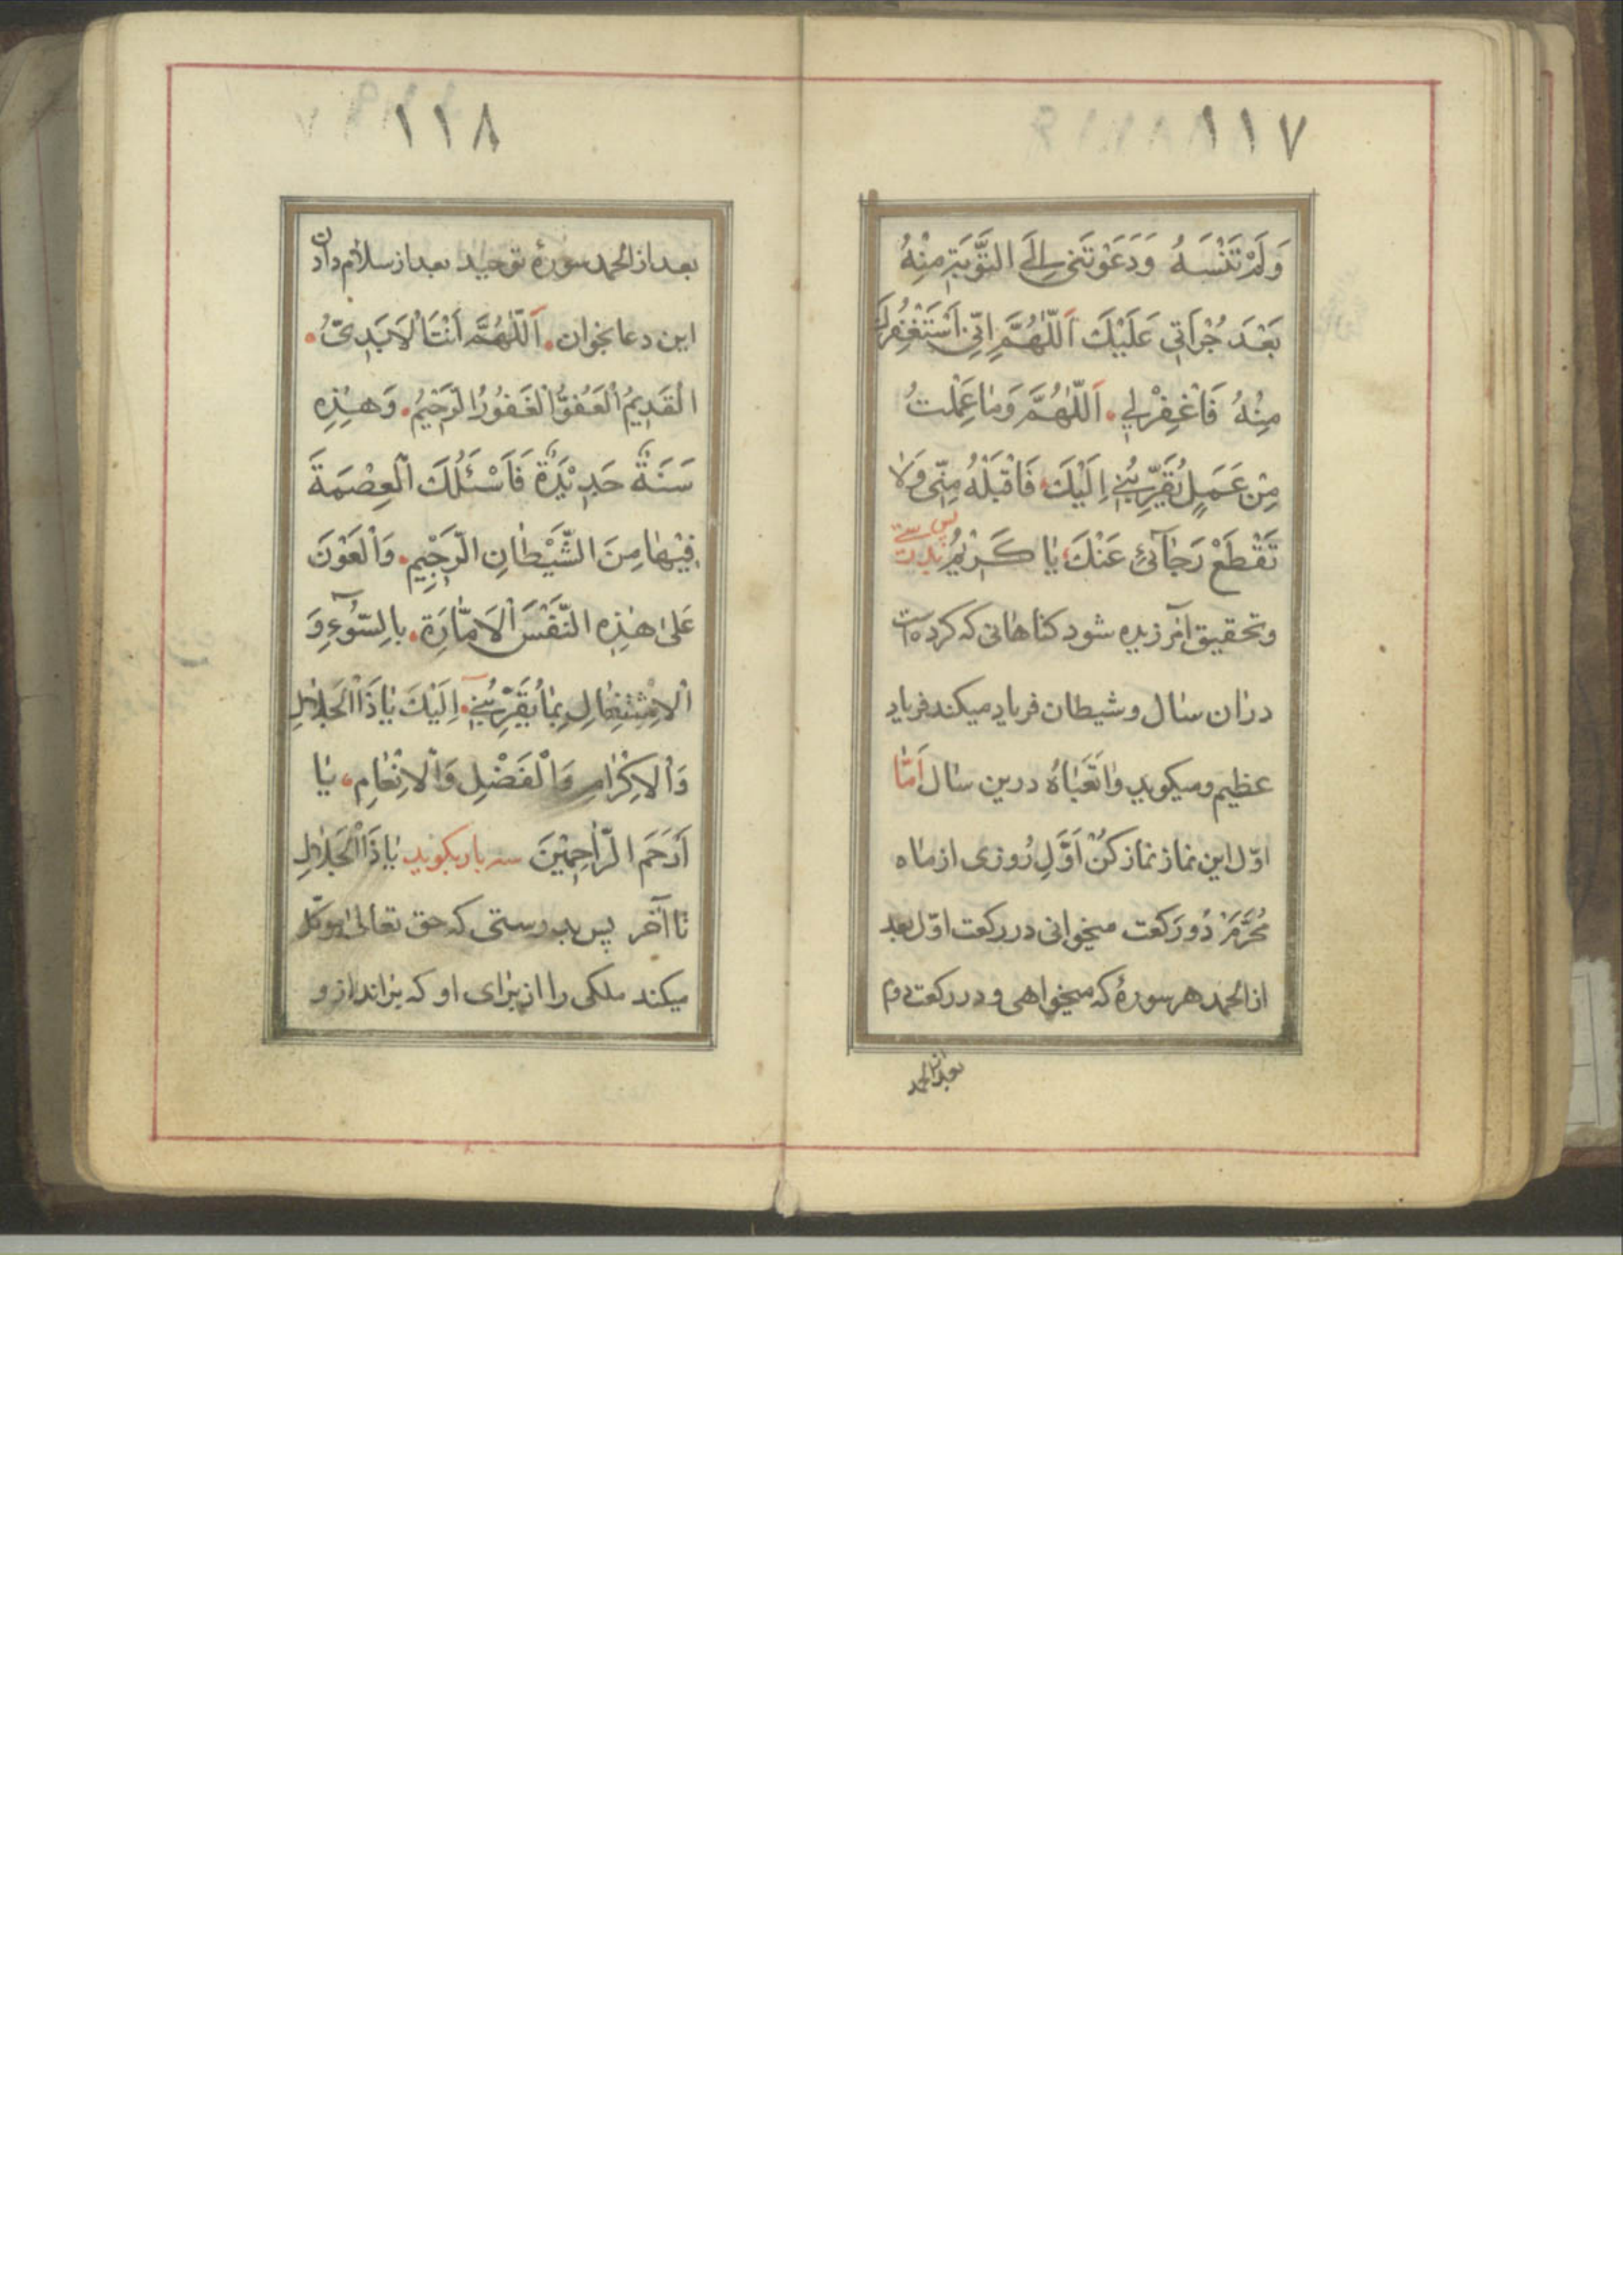 ١١٧
وَلَمْ تَنْسَهُ وَدَعَوْتَنی اِلَی التَّوْبَةِ مِنْهُ
بَعْدَ جُرْاَتی عَلَیْكَ اَللّٰهُمَّ اِنّی اَسْتَغْفِرُكَ
مِنْهُ فَاغْفِرْلی. اَللّٰهُمَّ وَمٰا عَمِلْتُ
مِنْ عَمَلٍ یُقَرِّبُنی اِلَیْكَ فَاقْبَلْهُ مِنّی وَلٰا
تَقْطَعْ رَجٰآئی عَنْكَ یٰا كَرٖیمُ
وتحقیق آمرزیده شود كناهانی كه كرده است
دران سٰال و شیطان فریاد میكند فریاد
عظیم و میكوید وٰاتَعَبٰاهُ درین سٰال اَمّٰا
اوّل این نماز نماز كنْ اَوَّلِ رُوزی از مٰاه
مُحَرَّمْ دُو رَكعت میخوانی در ركعت اوّل بعد
از الحمد هر سورهٔ كه میخواهی و در ركعت دوم
بعد از الحمد
١١٨
بعد از الحمد سورهٔ توحید بعد از سلام دادن
این دعا بخوان. اَللّٰهُمَّ اَنْتَ الْاَبَدِیُّ.
الْقَدٖیمُ الْعَفُوُّ الْغَفُورُ الرَّحٖیمُ. وَهٰذِهِ
سَنَةٌ جَدٖیْدَةٌ فَاَسْئَلُكَ الْعِصْمَةَ
فٖیْهٰا مِنَ الشَّیْطٰانِ الرَّجٖیْمِ. وَالْعَوْنَ
عَلیٰ هٰذِهِ النَّفْسَ الْاَمّٰارَةِ. بِالسُّوٓءِ وَ
الْاِشْتِغٰالِ بِمٰا یُقَرِّبُنی. اِلَیْكَ یٰا ذَاالْجَلٰالِ
وَالْاِكْرٰامِ وَالْفَضْلِ وَالْاِنْعٰامِ، یٰا
اَرْحَمَ الرّٰاحِمٖیْنَ سه بار بكوید یٰا ذَاالْجَلٰالِ
تا آخر پس بدرستی كه حق تعالیٰ موكّل
میكند ملكی را از برٰای او كه براندازو